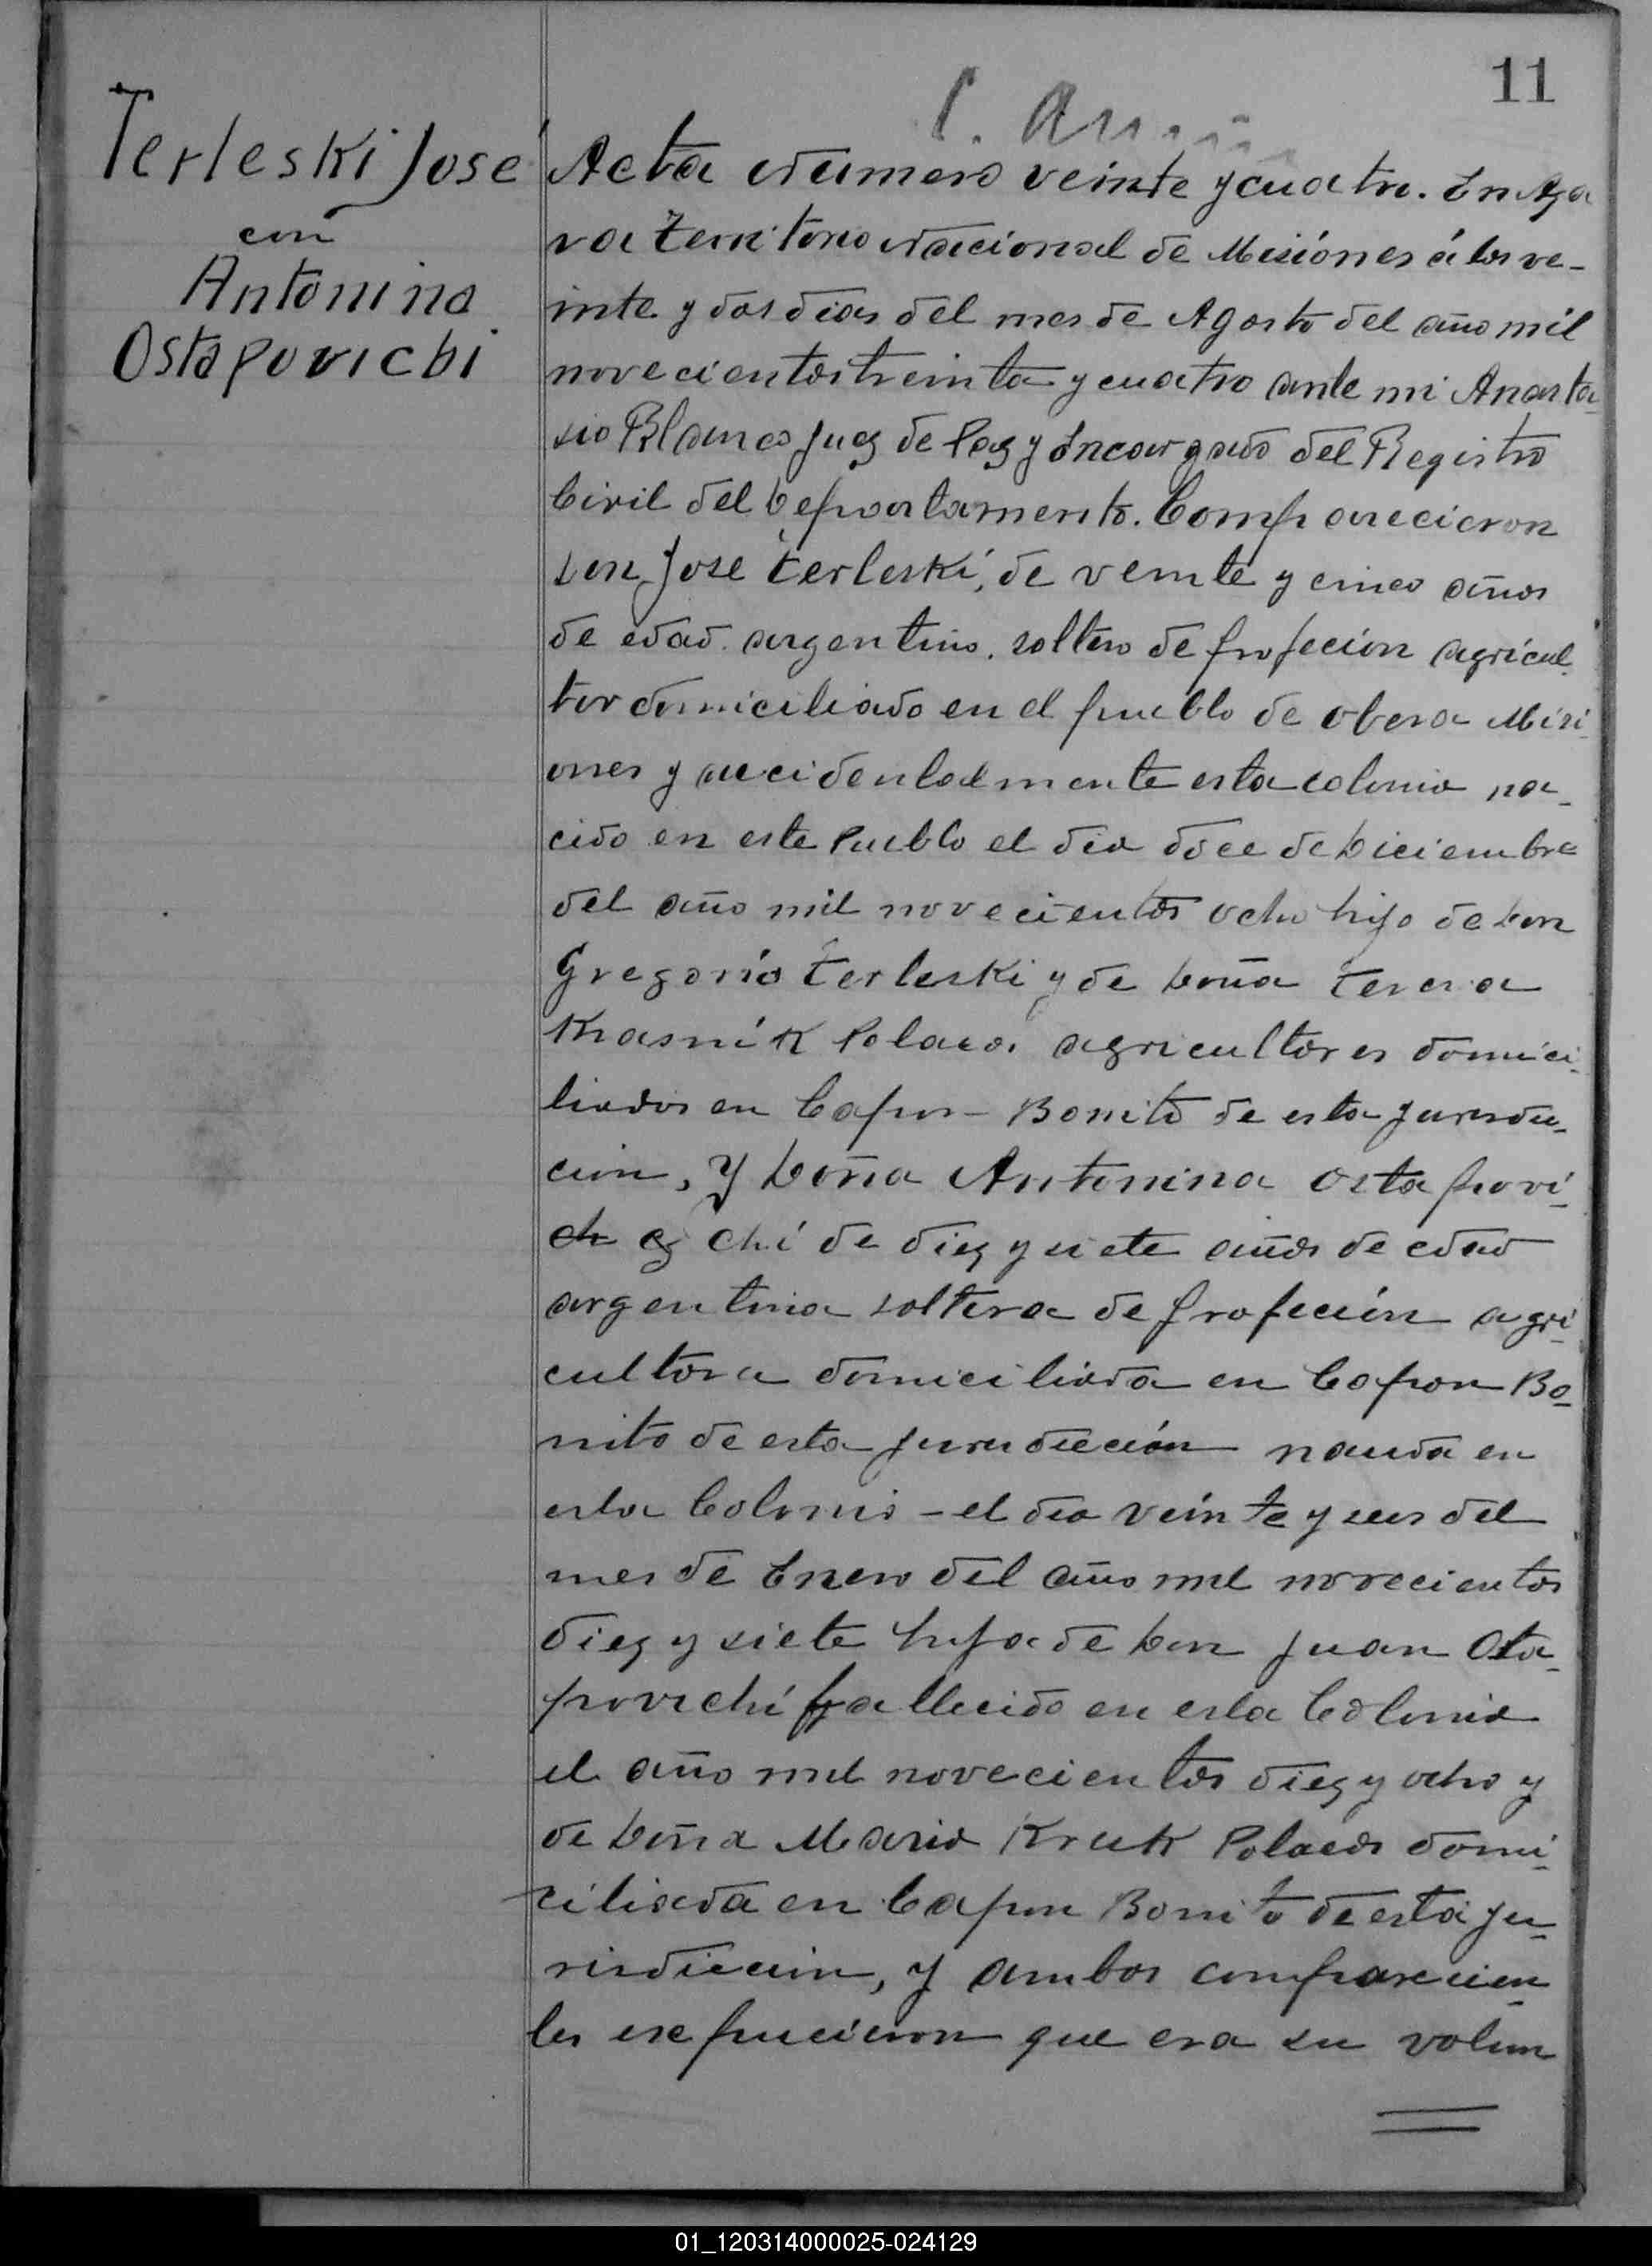 11
Terleski Jose
con
Antonina
Ostapovichi
Acta Numero veinte y cuatro. En Aza
ra Territorio Nacional de Misiónes á los ve-
inte y dos dias del mes de Agosto del año mil
novecientos treinta y cuatro ante mi Anasta-
sio Blanco Juez de Paz y Encargado del Registro
Civil del Departamento. Comparecieron
Don Jose Terleski, de veinte y cinco años
de edad argentino. soltero de profeción agricul-
tor domiciliado en el pueblo de obera Misi-
ones y accidentalmente esta colonia na-
cido en este Pueblo el dia doce de Diciembre
del año mil novecientos ocho hijo de Don
Gregorio Terleski y de Doña Teresa
Krasnik Polacos agricultores domici-
liados en Capon Bonito de esta jurisdi-
cion, Y Doña Antonina Ostapovi-
chi de diez y siete años de edad
argentina soltera de profeción agri-
cultora domiciliada en Capon Bo-
nito de esta jurisdicción nacida en
esta Colonia - el dia veinte y seis del
mes de Enero del año mil novecientos
diez y siete hija de Don Juan Osta-
povichi fallecido en esta Colonia
el año mil novecientos diez y ocho y
de Doña Maria Kruk Polacos domi-
ciliada en Capon Bonito de esta ju-
risdiccion, y ambos comparecien-
tes expucieron que era su volun
01_120314000025-024129